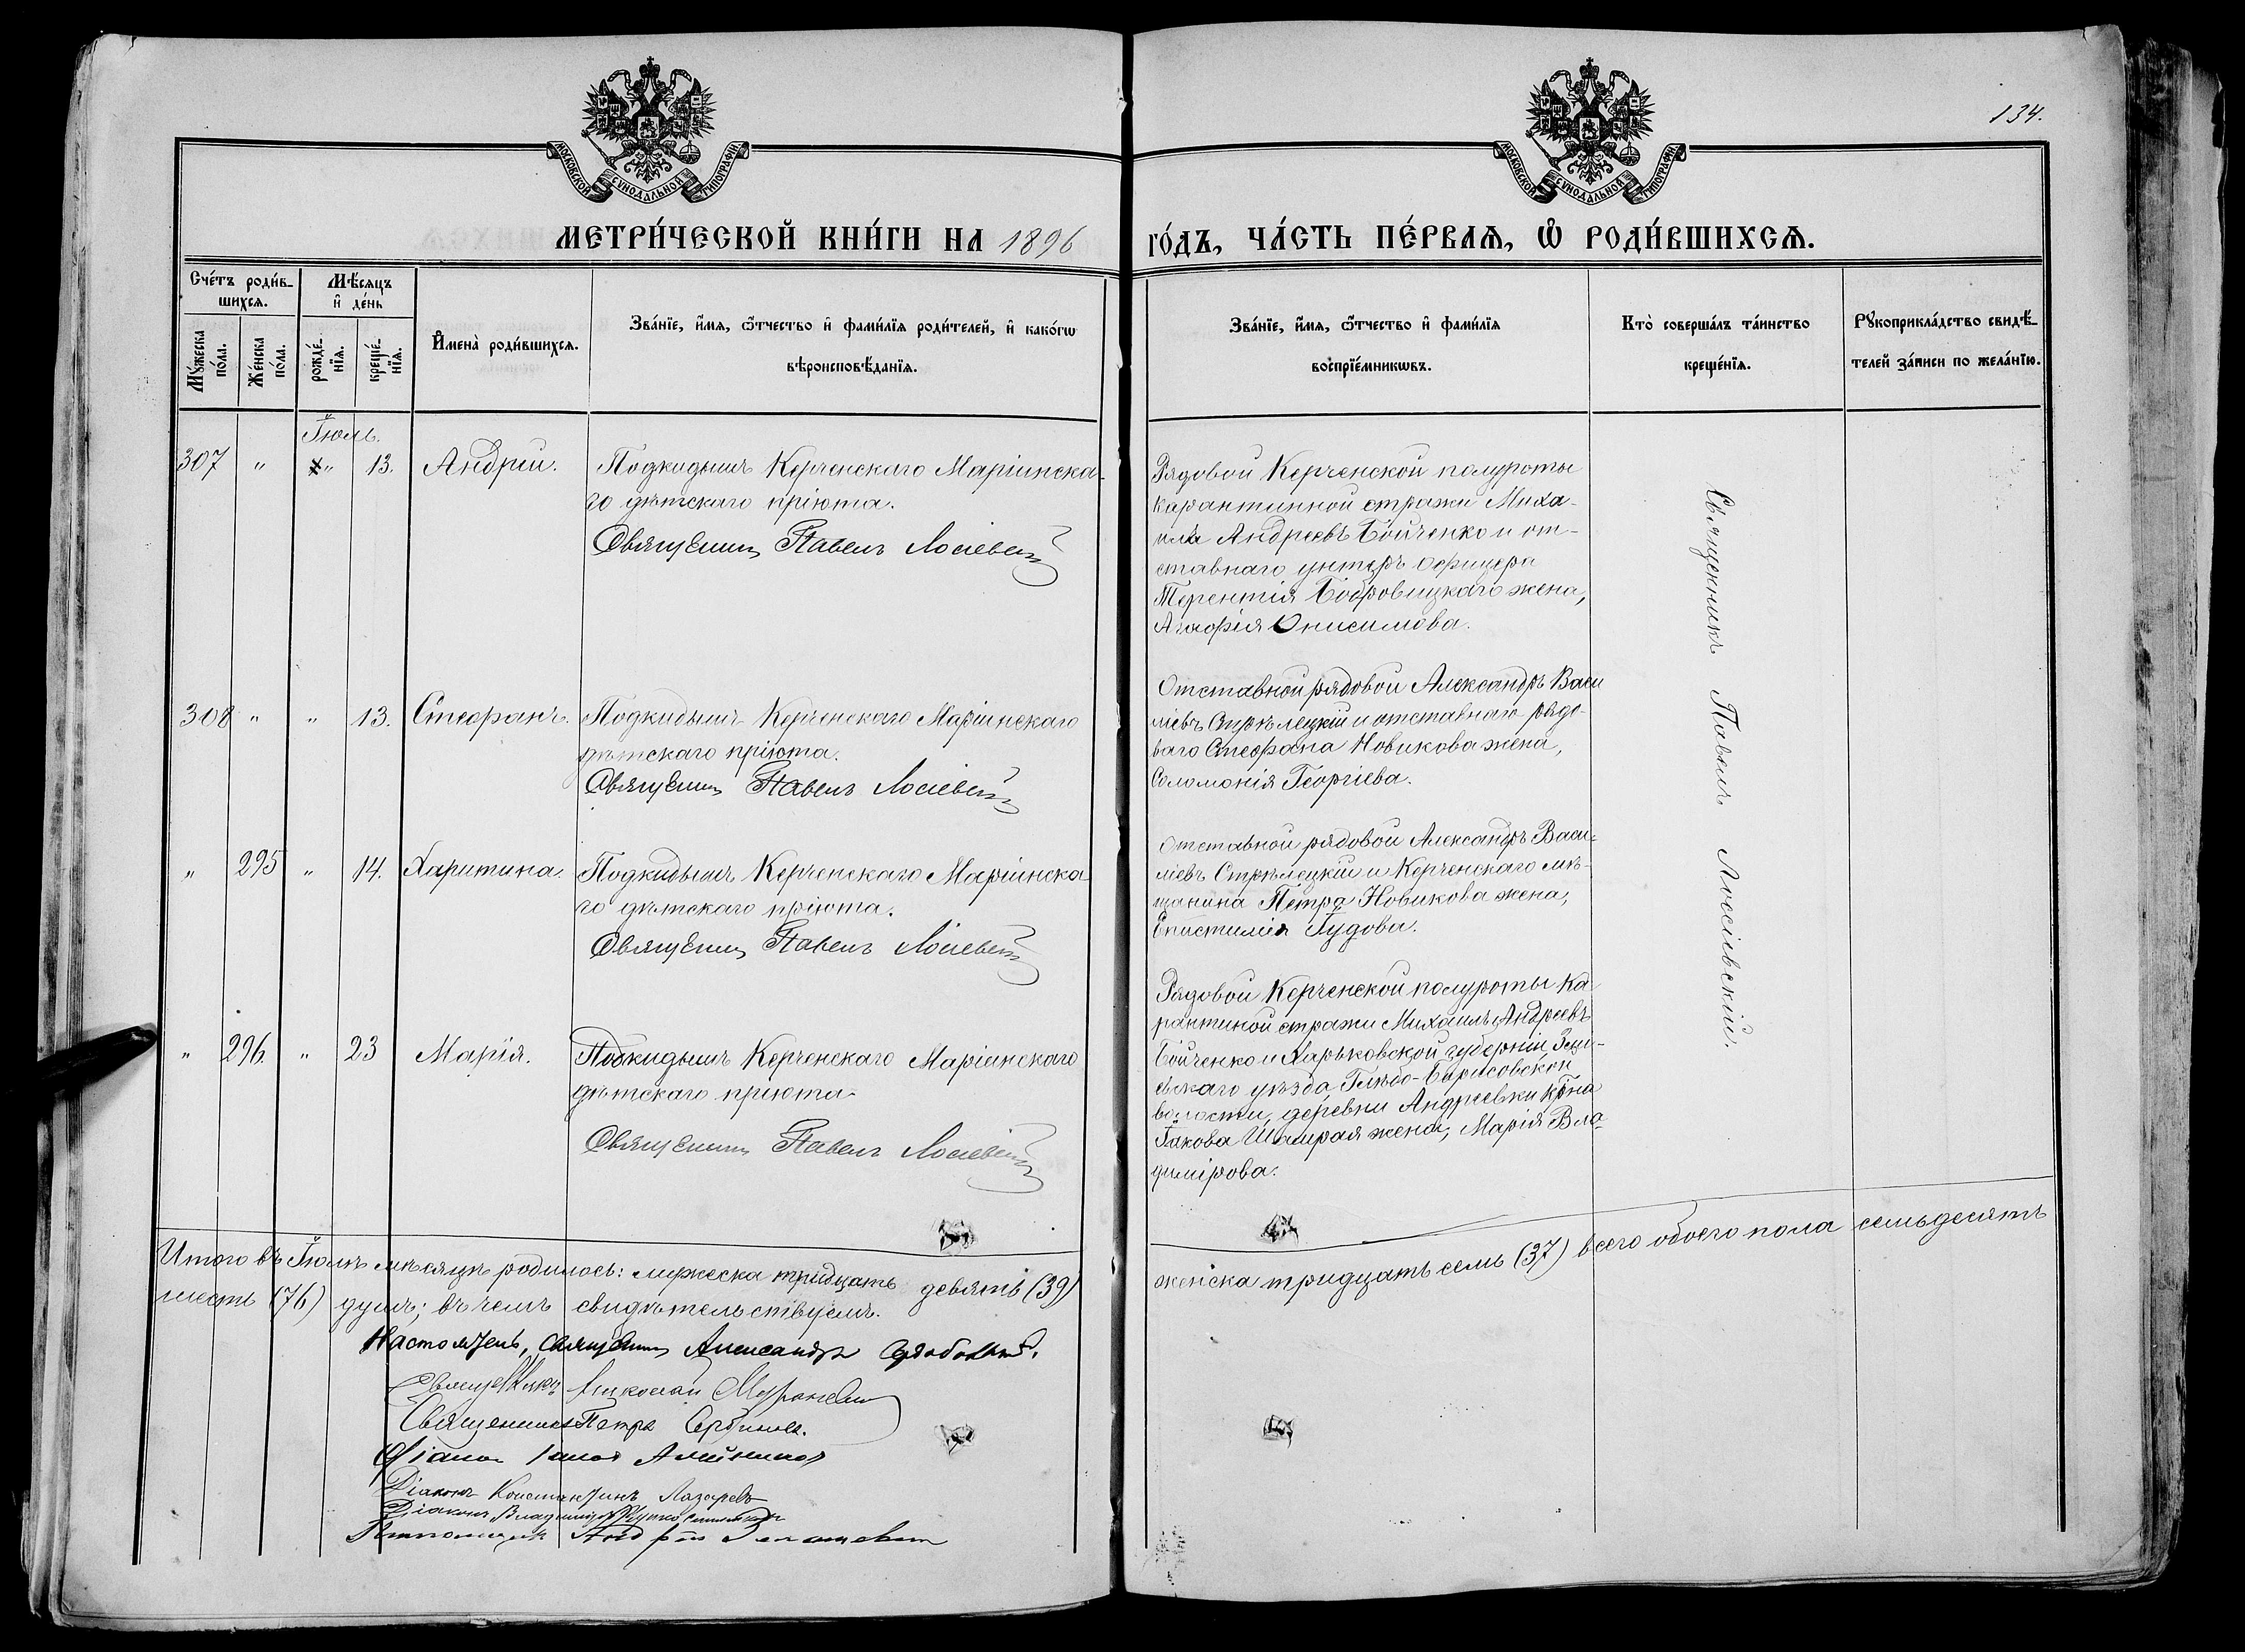 134.
МОСКОВСКОЙ СѴНОДАЛЬНОЙ ТИПОГРАФІИ
МОСКОВСКОЙ СѴНОДАЛЬНОЙ ТИПОГРАФІИ
МЕТРИ́ЧЕСКОЙ КНИ́ГИ НА 1896
ГО́ДЪ, ЧА́СТЬ ПЕ́РВАѦ, Ѽ РОДИ́ВШИХСѦ.
Сче́тъ роди́в-
шихсѧ.
Мꙋ́жеска по́ла.
Же́нска по́ла.
Мѣ́сѧцъ
и҆ де́нь
рожде́-
нїѧ.
креще́-
нїѧ.
И҆мена̀ роди́вшихсѧ.
Зва́нїе, и҆́мѧ, ѻ҆́тчество и҆ фами́лїѧ роди́телей, и҆ како́гѡ
вѣроисповѣ́данїѧ.
Зва́нїе, и҆́мѧ, ѻ҆́тчество и҆ фами́лїѧ
воспрїе́мникѡвъ.
Кто̀ соверша́лъ та́инство
креще́нїѧ.
Рꙋкоприкла́дство свидѣ́-
телей за́писи по жела́нїю.
Іюль.
307 " " 13. Андрій. Подкидышъ Керченскаго Маріинска-
го дѣтскаго пріюта.
Священникъ Павелъ Лосіевскій
Рядовой Керченской полуроты
карантинной стражи Миха-
илъ Андреевъ Бойченко и от-
ставнаго унтеръ офицера
Терентія Бобровицкаго жена,
Агафія Онисимова.
308 " " 13. Стефанъ. Подкидышъ Керченскаго Маріинскаго
дѣтскаго пріюта.
Священникъ Павелъ Лосіевскій
Отставной рядовой Александръ Васи
ліевъ Стрѣлецкій и отставнаго рядо-
ваго Стефана Новикова жена,
Соломонія Георгіева.
" 295 " 14. Харитина. Подкидышъ Керченскаго Маріинска
го дѣтскаго пріюта.
Священникъ Павелъ Лосіевскій
Отставной рядовой Александръ Васи-
ліевъ Стрѣлецкій и Керченскаго мѣ-
щанина Петра Новикова жена,
Епистимія Гудова.
" 296. " 23 Марія. Подкидышъ Керченскаго Маріинскаго
дѣтскаго пріюта.
Священникъ Павелъ Лосіевскій
Рядовой Керченской полуроты ка
рантиной стражи Михаилъ Андреевъ
Бойченко и Харьковской губерніи Зми-
евскаго уѣзда, Глѣбо-Борисовской
волости, деревни Андреевки кр-на
Іакова Шапрая жена, Марія Вла-
димірова.
Священникъ Павелъ Лосіевскій.
Итого въ Іюлѣ мѣсяцѣ родилось: мужеска тридцать девять (39)
женска тридцать семь (37) всего обоего пола семьдесятъ
шесть (76) душъ; въ чемъ свидѣтельствуемъ.
Настоятель, священникъ Александръ
Священникъ Николай
Священникъ Петръ Сербиновъ.
Діаконъ Іаковъ Алейниковъ
Діаконъ Константинъ Лазаревъ
Діаконъ Владиміръ
Псаломщикъ